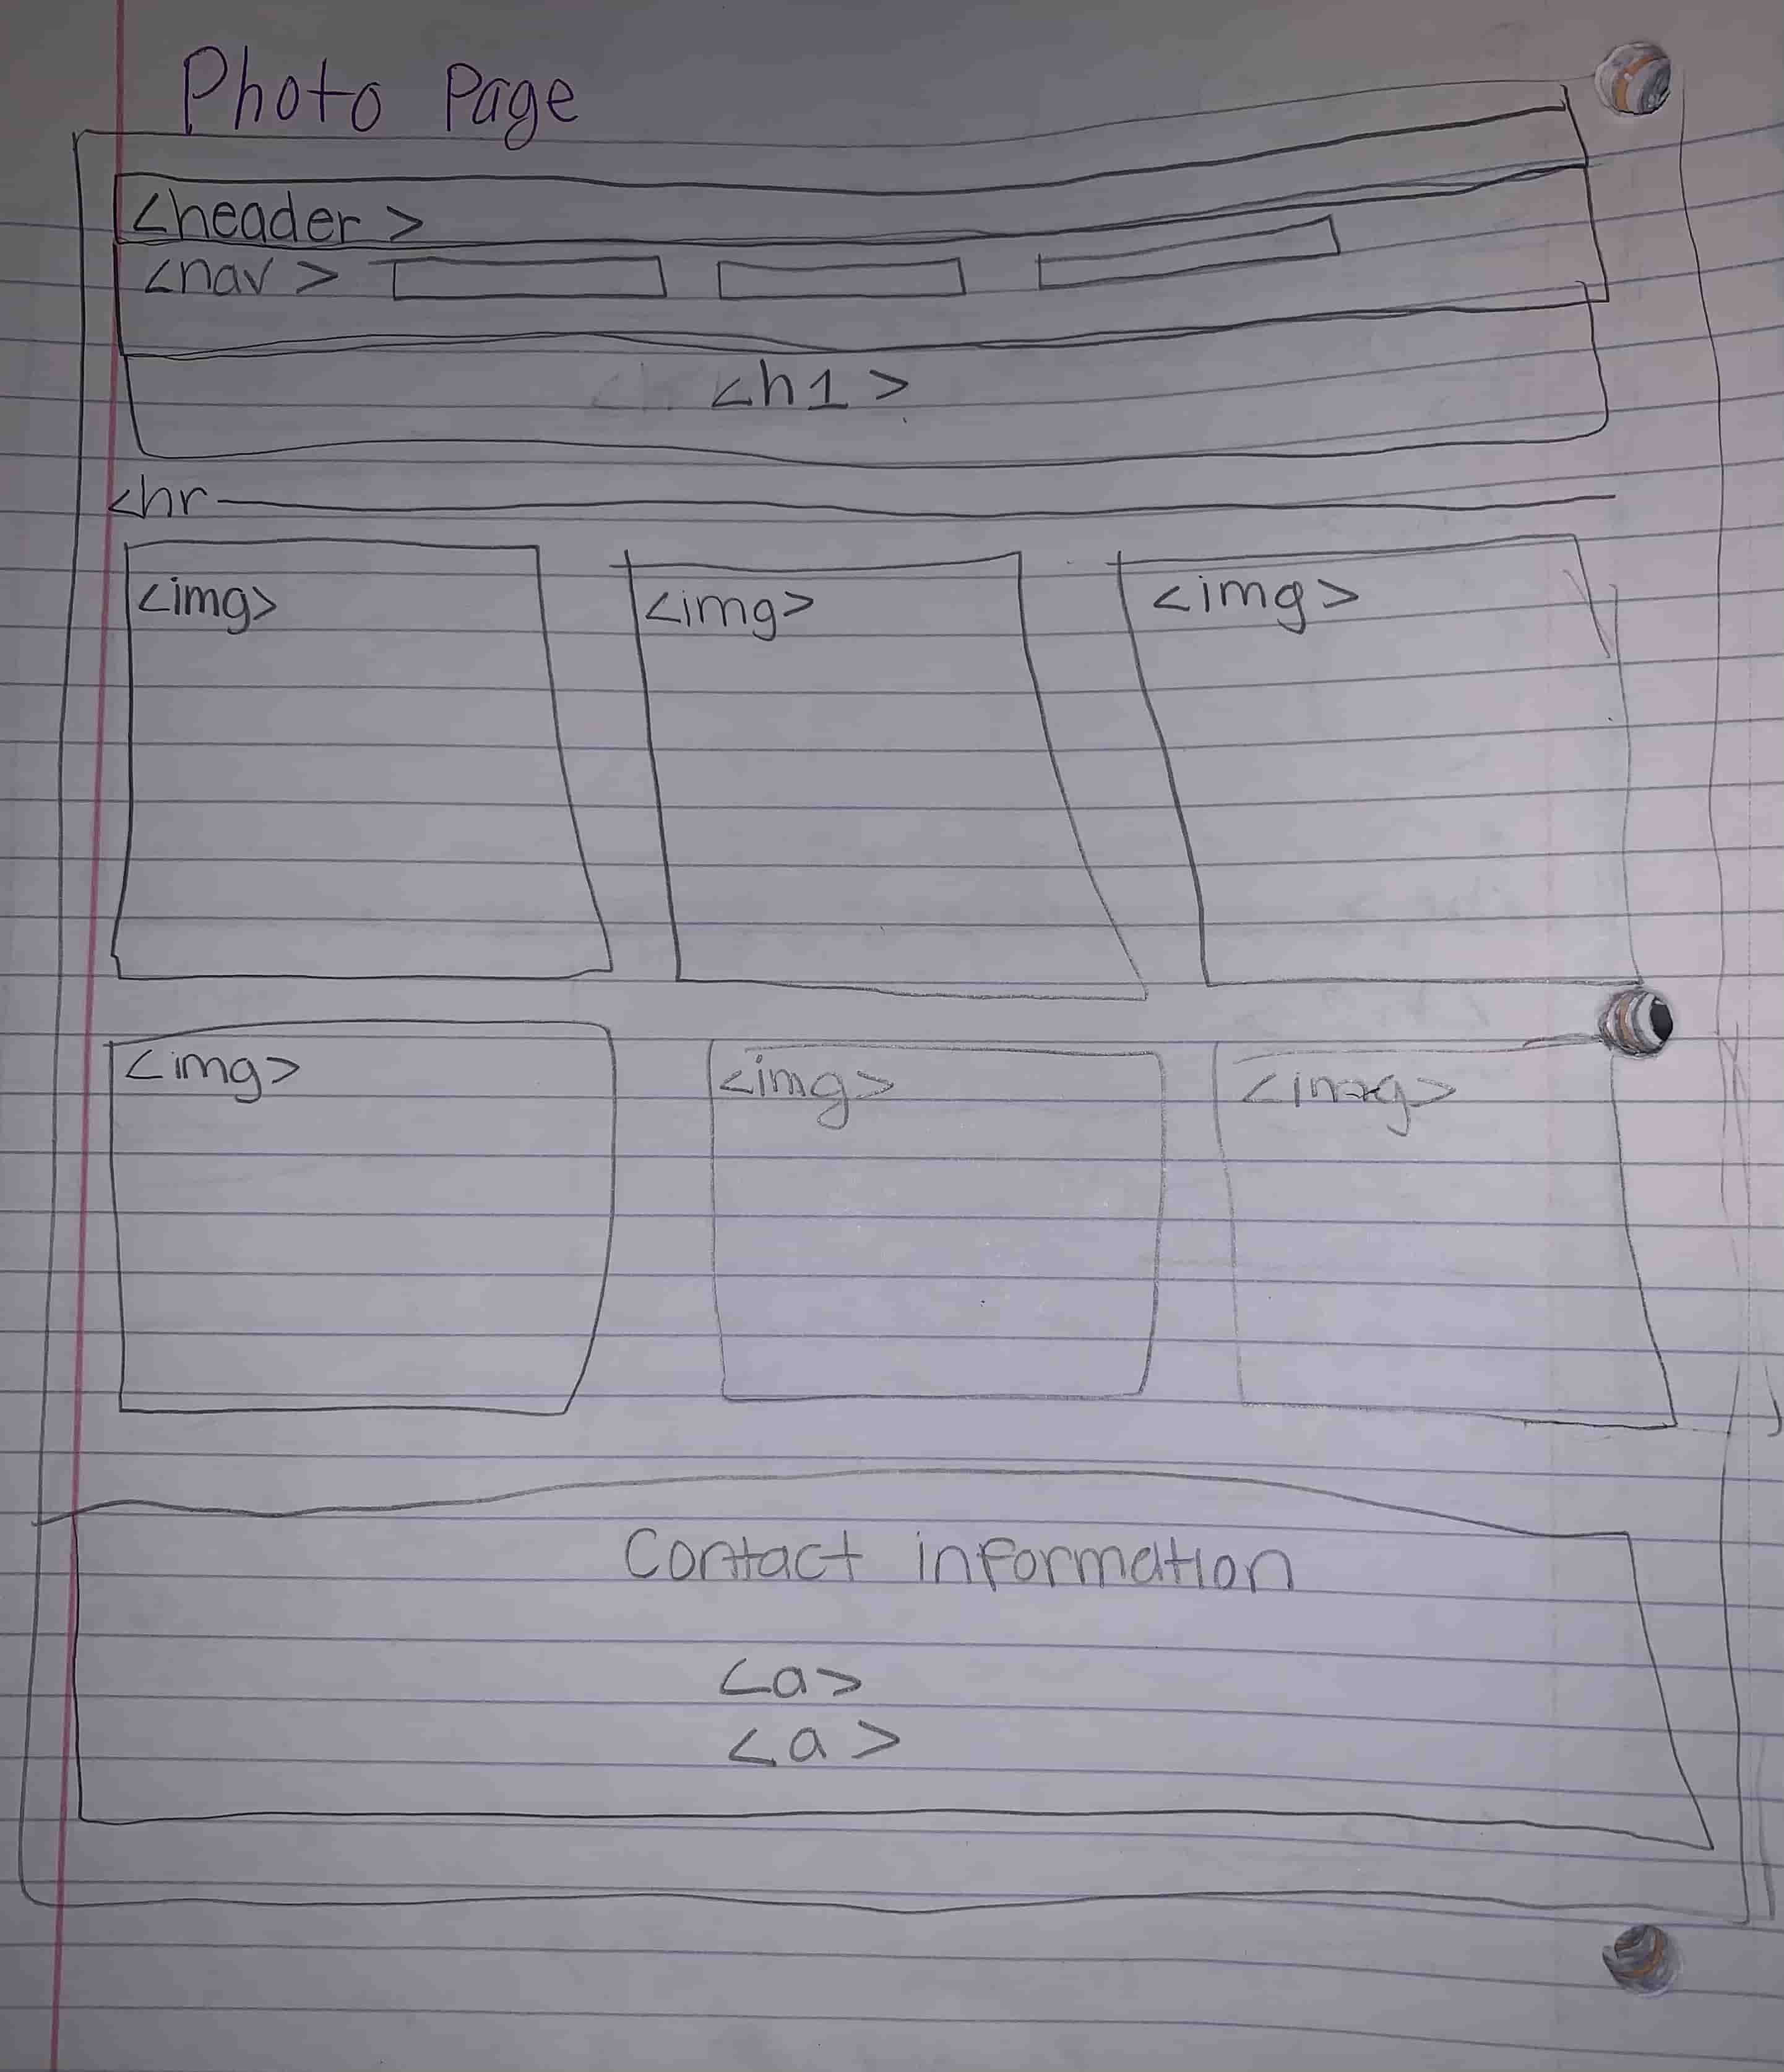 Photo Page
<header>
<nav>
<h1>
<hr
<img> <img> <img>
<img> <img> <img>
Contact information
<a>
<a>